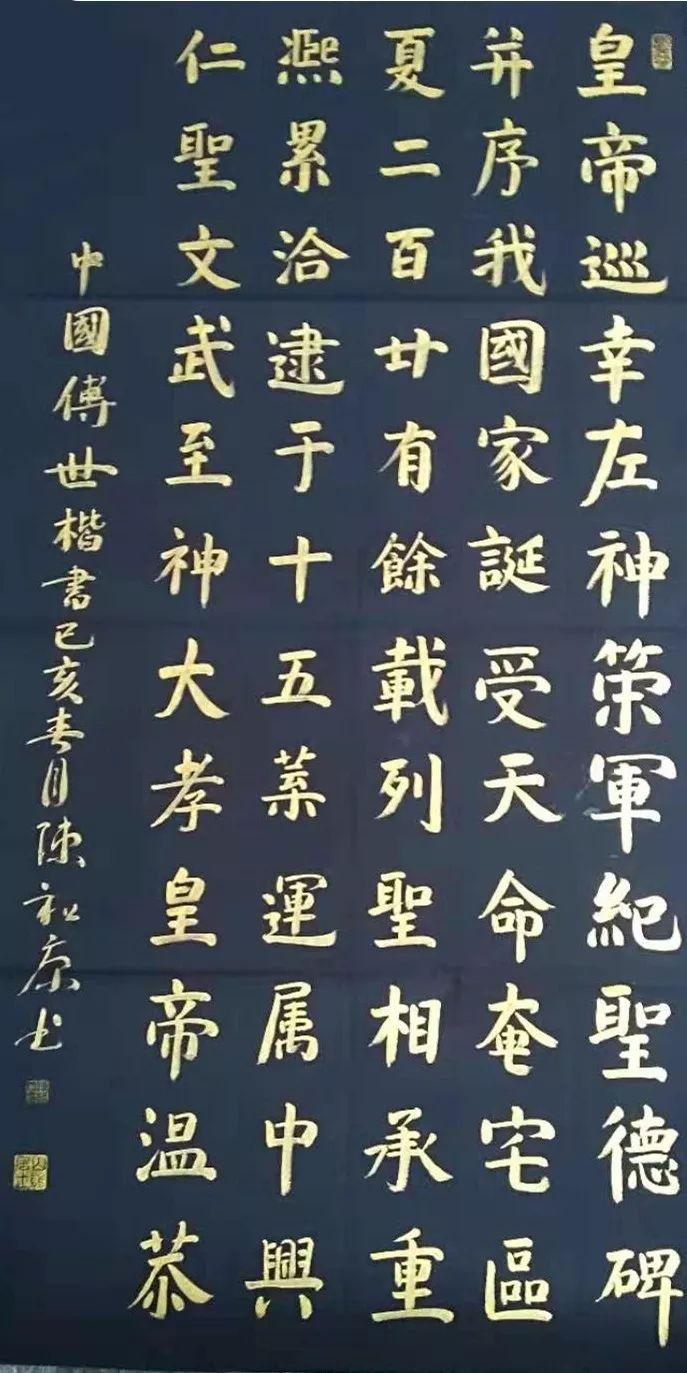 皇帝巡幸左神策軍紀聖德碑
并序我國家誕受天命奄宅區
夏二百廿有餘載列聖相承重
熈累洽逮于十五葉運属中興
仁聖文武至神大孝皇帝温恭
中國傳世楷書己亥春月陳松康书